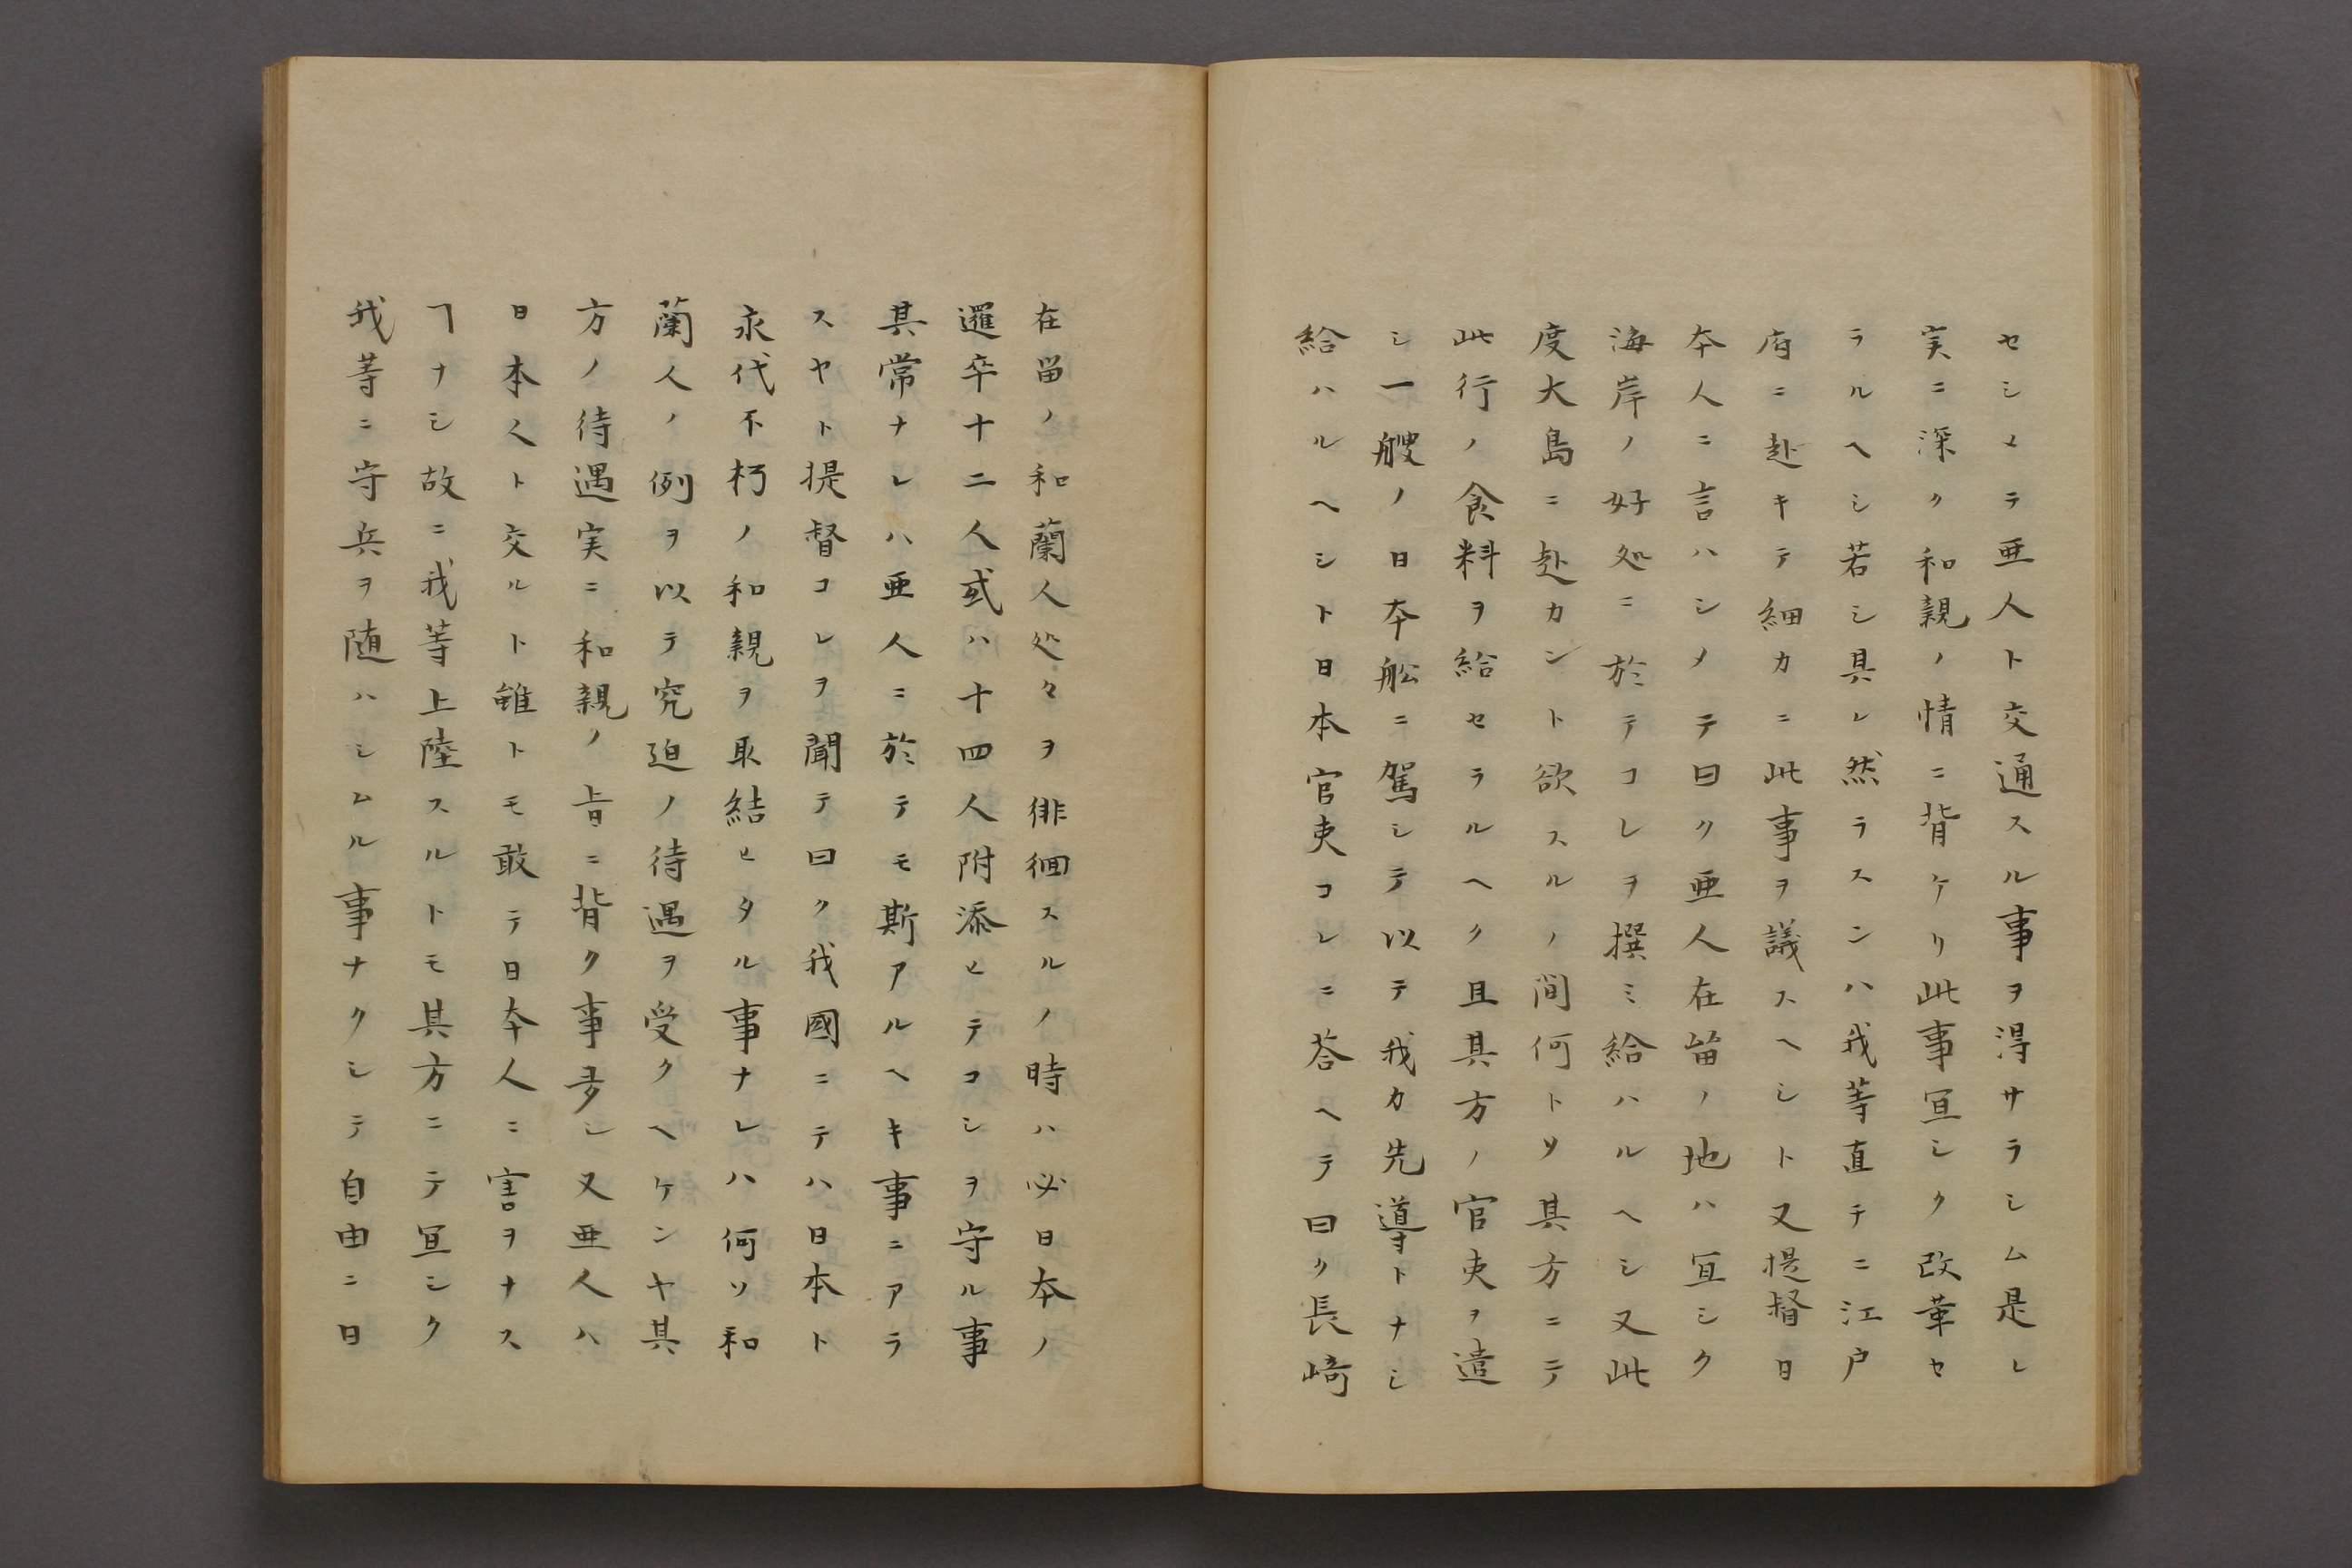 セシメテ亜人ト交通スル事ヲ淂サラシム是レ
実ニ深ク和親ノ情ニ背ケリ此事宜シク改革セ
ラルヘシ若シ具レ然ラスンハ我等直チニ江戸
府ニ赴キテ細カニ此事ヲ議スヘシト又提督日
本人ニ言ハシメテ曰ク亜人在留ノ地ハ宜シク
海岸ノ好処ニ於テコレヲ撰ミ給ハルヘシ又此
度大島ニ赴カント欲スルノ間何トソ其方ニテ
此行ノ食料ヲ給セラルヘク且其方ノ官吏ヲ遣
シ一艘ノ日本舩ニ駕シテ以テ我カ先導トナシ
給ハルヘシト日本官吏コレニ荅ヘテ曰ク長崎
在留ノ和蘭人処々ヲ徘徊スルノ時ハ必日本ノ
邏卒十二人或ハ十四人附添ヒテコレヲ守ル事
其常ナレハ亜人ニ於テモ斯アルヘキ事ニアラ
スヤト提督コレヲ聞テ曰ク我國ニテハ日本ト
永代不朽ノ和親ヲ取結ヒタル事ナレハ何ソ和
蘭人ノ例ヲ以テ究迫ノ待遇ヲ受クヘケンヤ其
方ノ待遇実ニ和親ノ旨ニ背ク事多シ又亜人ハ
日本人ト交ルト雖トモ敢テ日本人ニ害ヲナス
ヿナシ故ニ我等上陸スルトモ其方ニテ宜シク
我等ニ守兵ヲ随ハシムル事ナクシテ自由ニ日